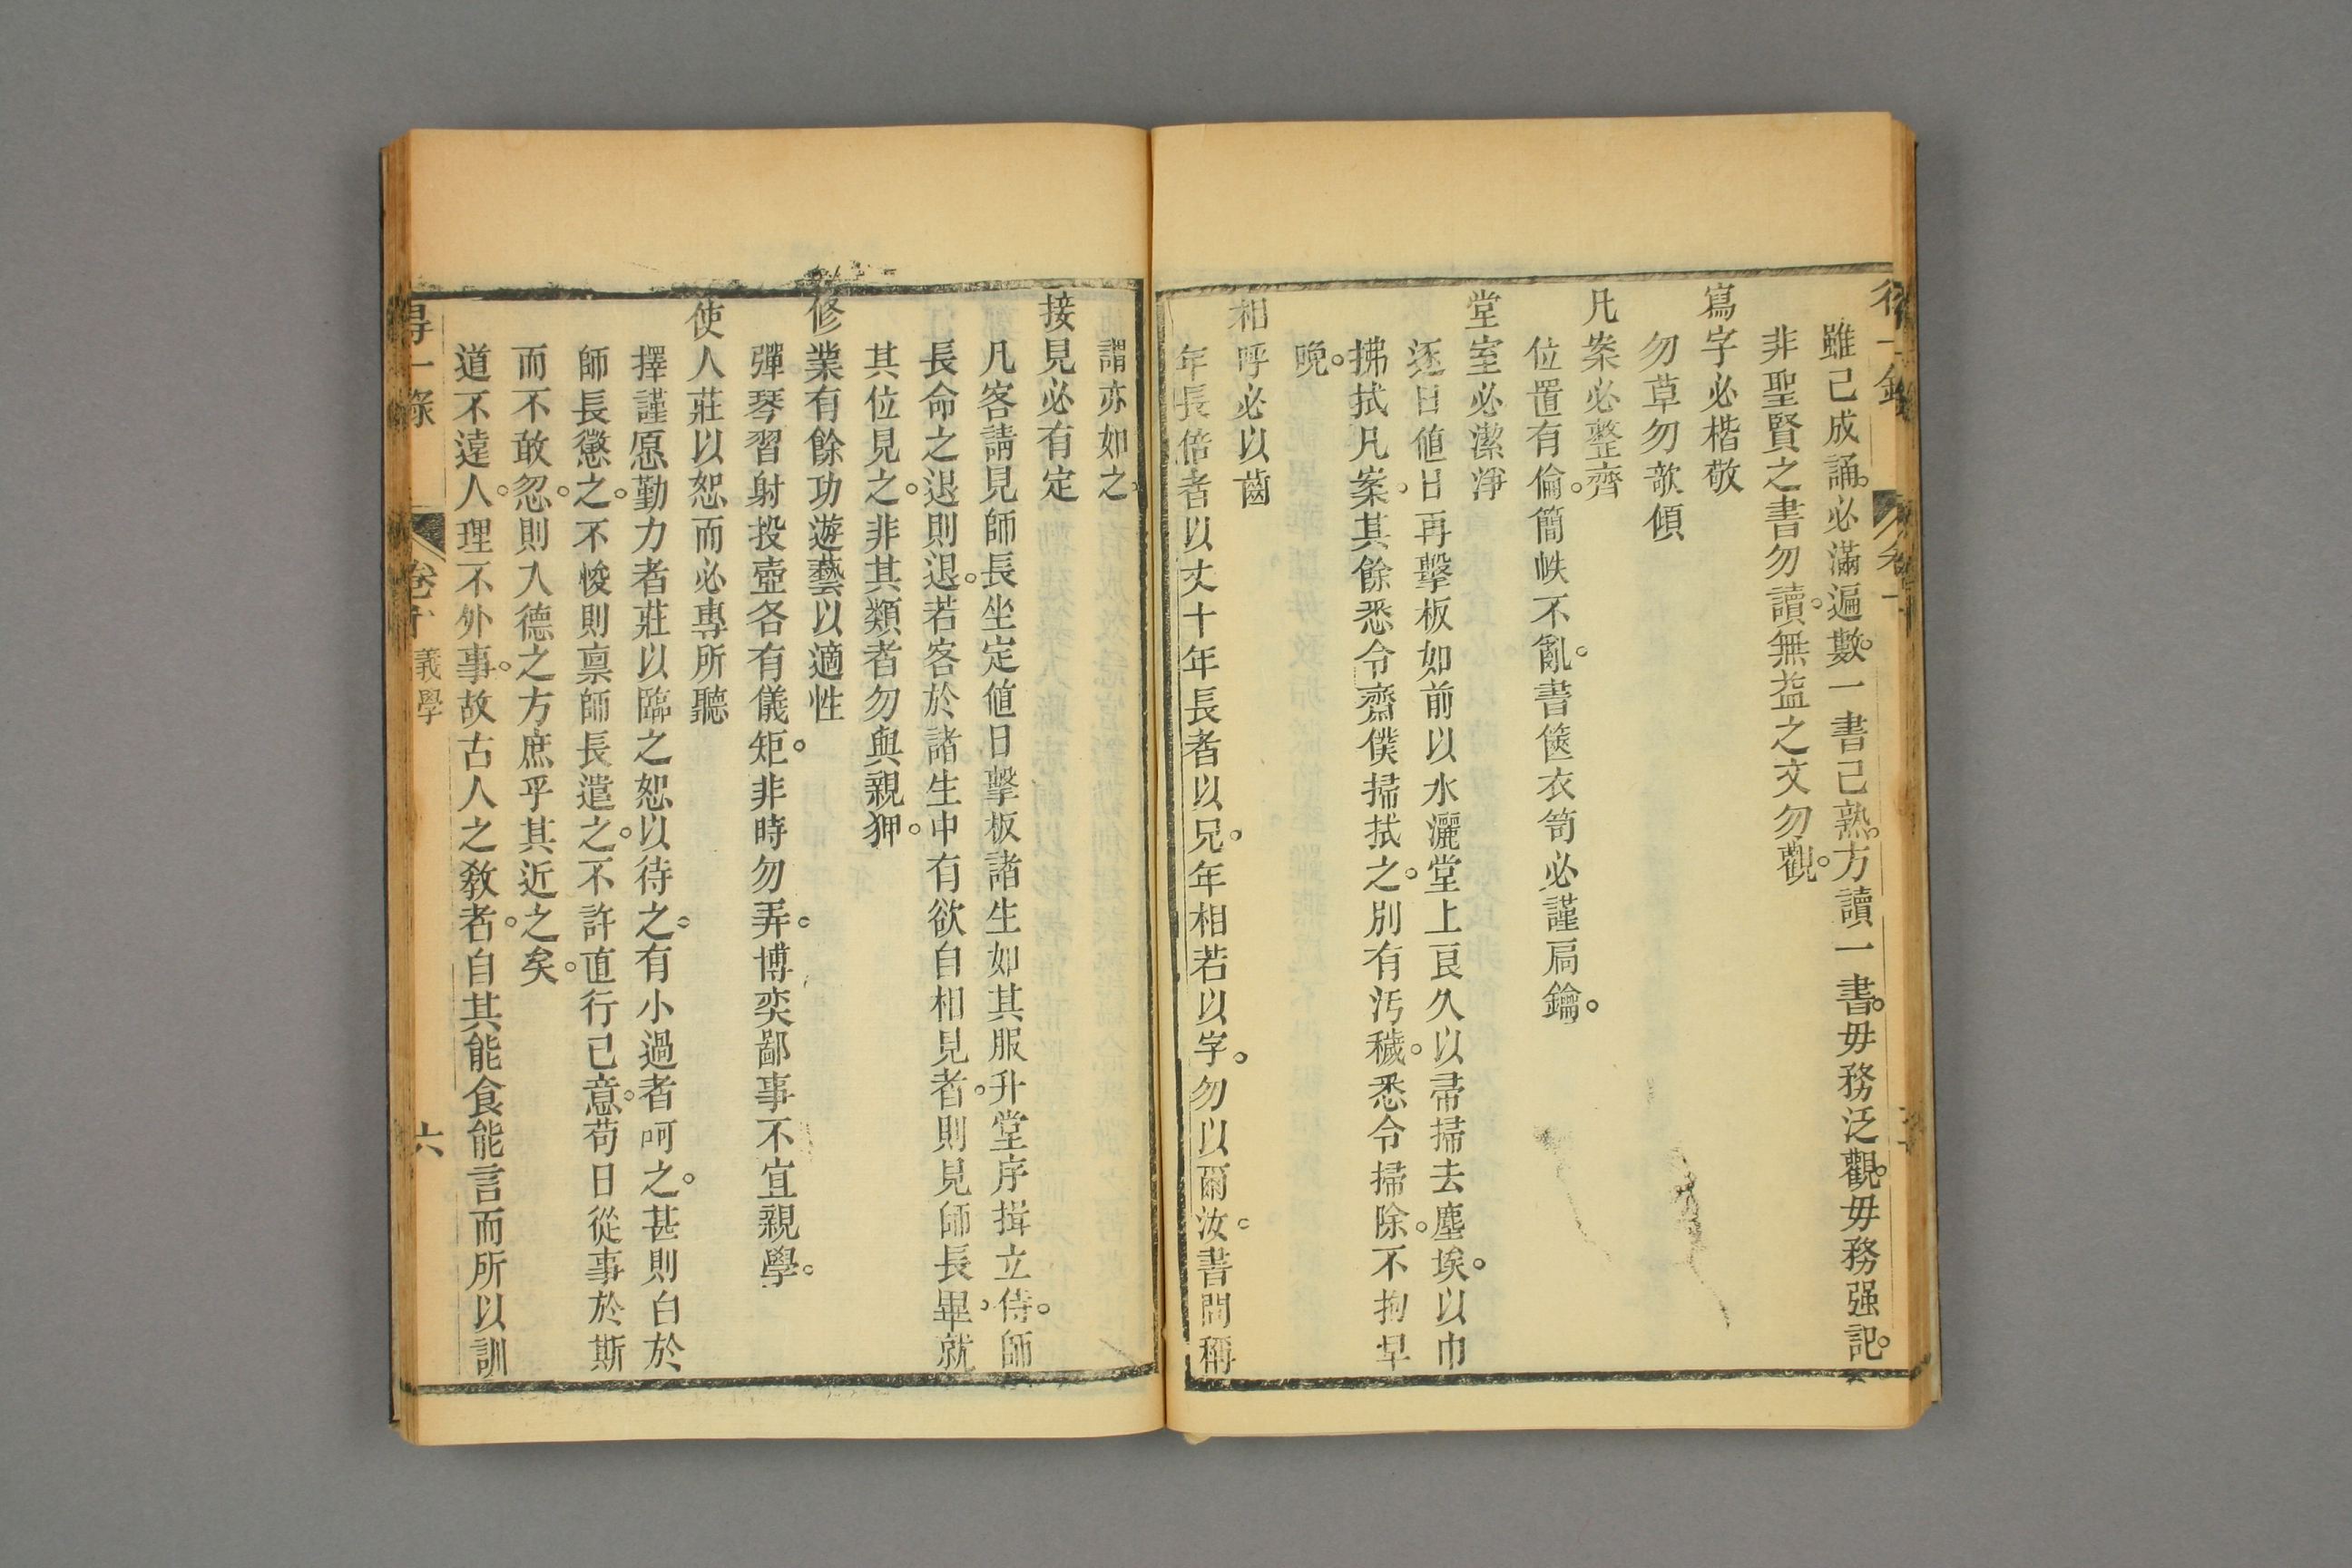 得一錄
卷十
雖已成誦。必滿遍數。一書已熟。方讀一書。毋務泛觀。毋務强記。
非聖賢之書勿讀。無益之文勿觀。
寫字必楷敬
勿草勿欹傾
凡案必整齊
位置有倫。簡帙不亂。書篋衣笥必謹扃鑰。
堂室必潔淨
逐日値日再擊板如前以水灑堂上良久以帚掃去塵埃。以巾
拂拭凡案。其餘悉令齋僕掃拭之。別有汚穢。悉令掃除。不拘早
晚。
相呼必以齒
年長倍者以丈十年長者以兄。年相若以字。勿以爾汝。書問稱
謂亦如之。
接見必有定
凡客請見師長坐定値日擊板諸生如其服升堂序揖立侍。師
長命之退則退。若客於諸生中有欲自相見者。則見師長畢。就
其位見之。非其類者勿與親狎。
修業有餘功遊藝以適性
彈琴習射投壺各有儀矩。非時勿弄。博奕鄙事不宜親學。
使人莊以恕而必專所聽
擇謹愿勤力者莊以臨之恕以待之。有小過者呵之。甚則白於
師長懲之。不悛則禀師長遣之。不許直行己意。苟日從事於斯
而不敢忽。則入德之方庶乎其近之矣。
道不遠人。理不外事。故古人之敎者。自其能食能言而所以訓
得一錄
卷十
義學
六